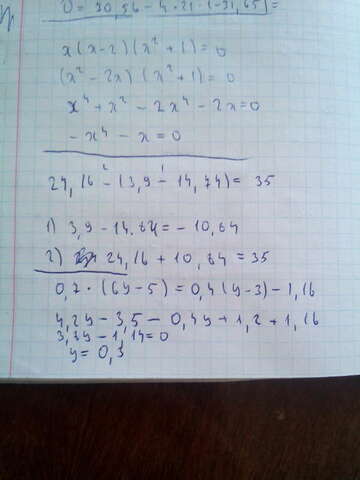 D = 30,56 - 4 · 21 · (-31,65) =
x(x-2)(x²+1)=0
(x²-2x)(x²+1)=0
x⁴+x²-2x⁴-2x=0
-x⁴-x=0
24,16 - (3,9 - 14,74) = 35
1) 3,9-14.64=-10,64
2) 24,16 + 10,84 = 35
0,7 · (6y-5) = 0,4(y-3)-1,16
4,2y - 3,5 - 0,4y + 1,2 + 1,16
3,8y - 1,14=0
y= 0,3